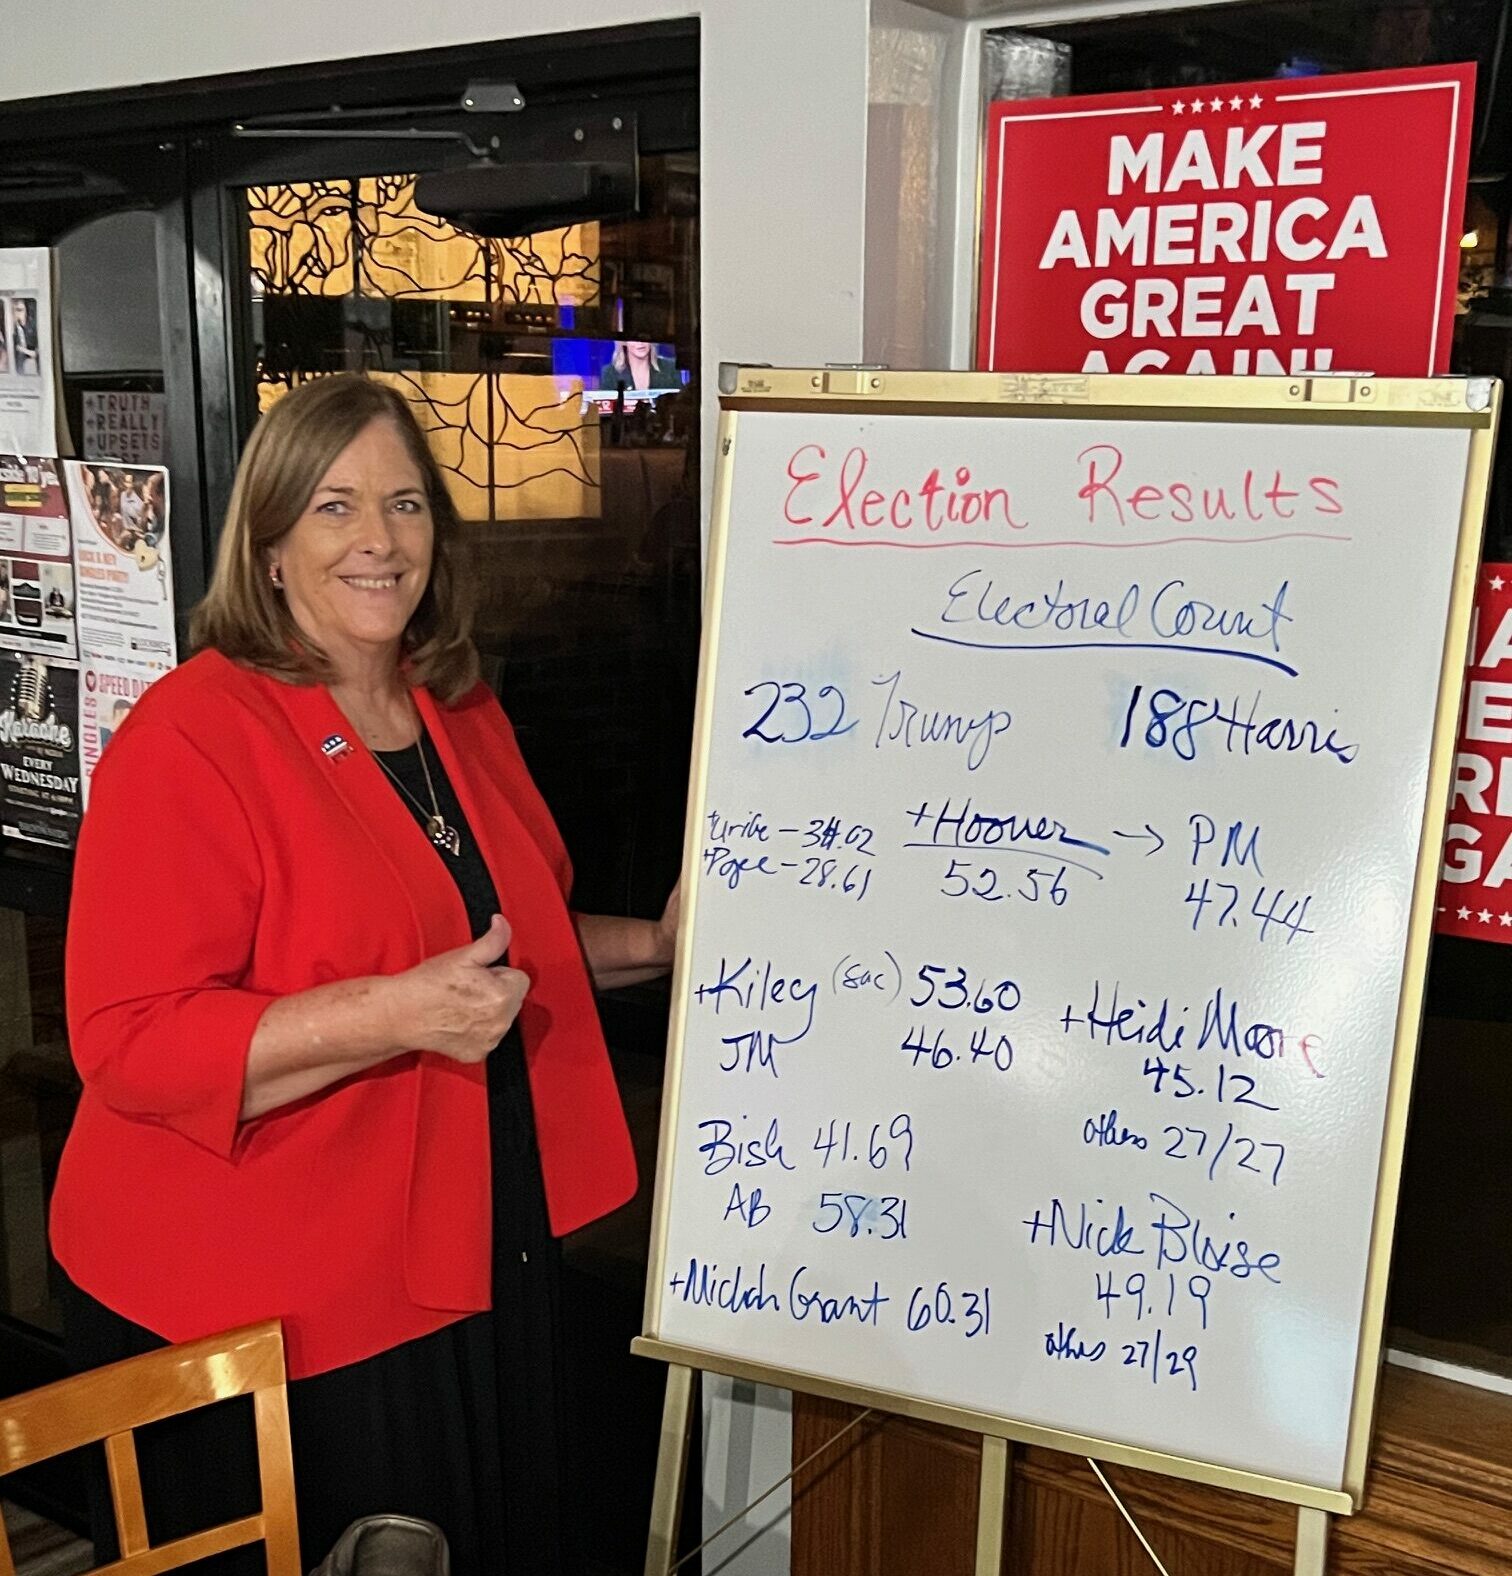 MAKE
AMERICA
GREAT
AGAIN!
Election Results
Electoral Count
232 Trump 188 Harris
+Uribe - 34.02
+Pogee - 28.61
+Hoover → PM
52.56 47.44
+Kiley (Sac) 53.60
JM 46.40
+Heidi Moore
45.12
others 27/27
Bish 41.69
AB 58.31
+Nick Bloise
49.19
others 27/29
+Micah Grant 60.31
+TRUTH
+REALLY
+UPSETS
SPEED
SINGLES
Karaoke
EVERY
WEDNESDAY